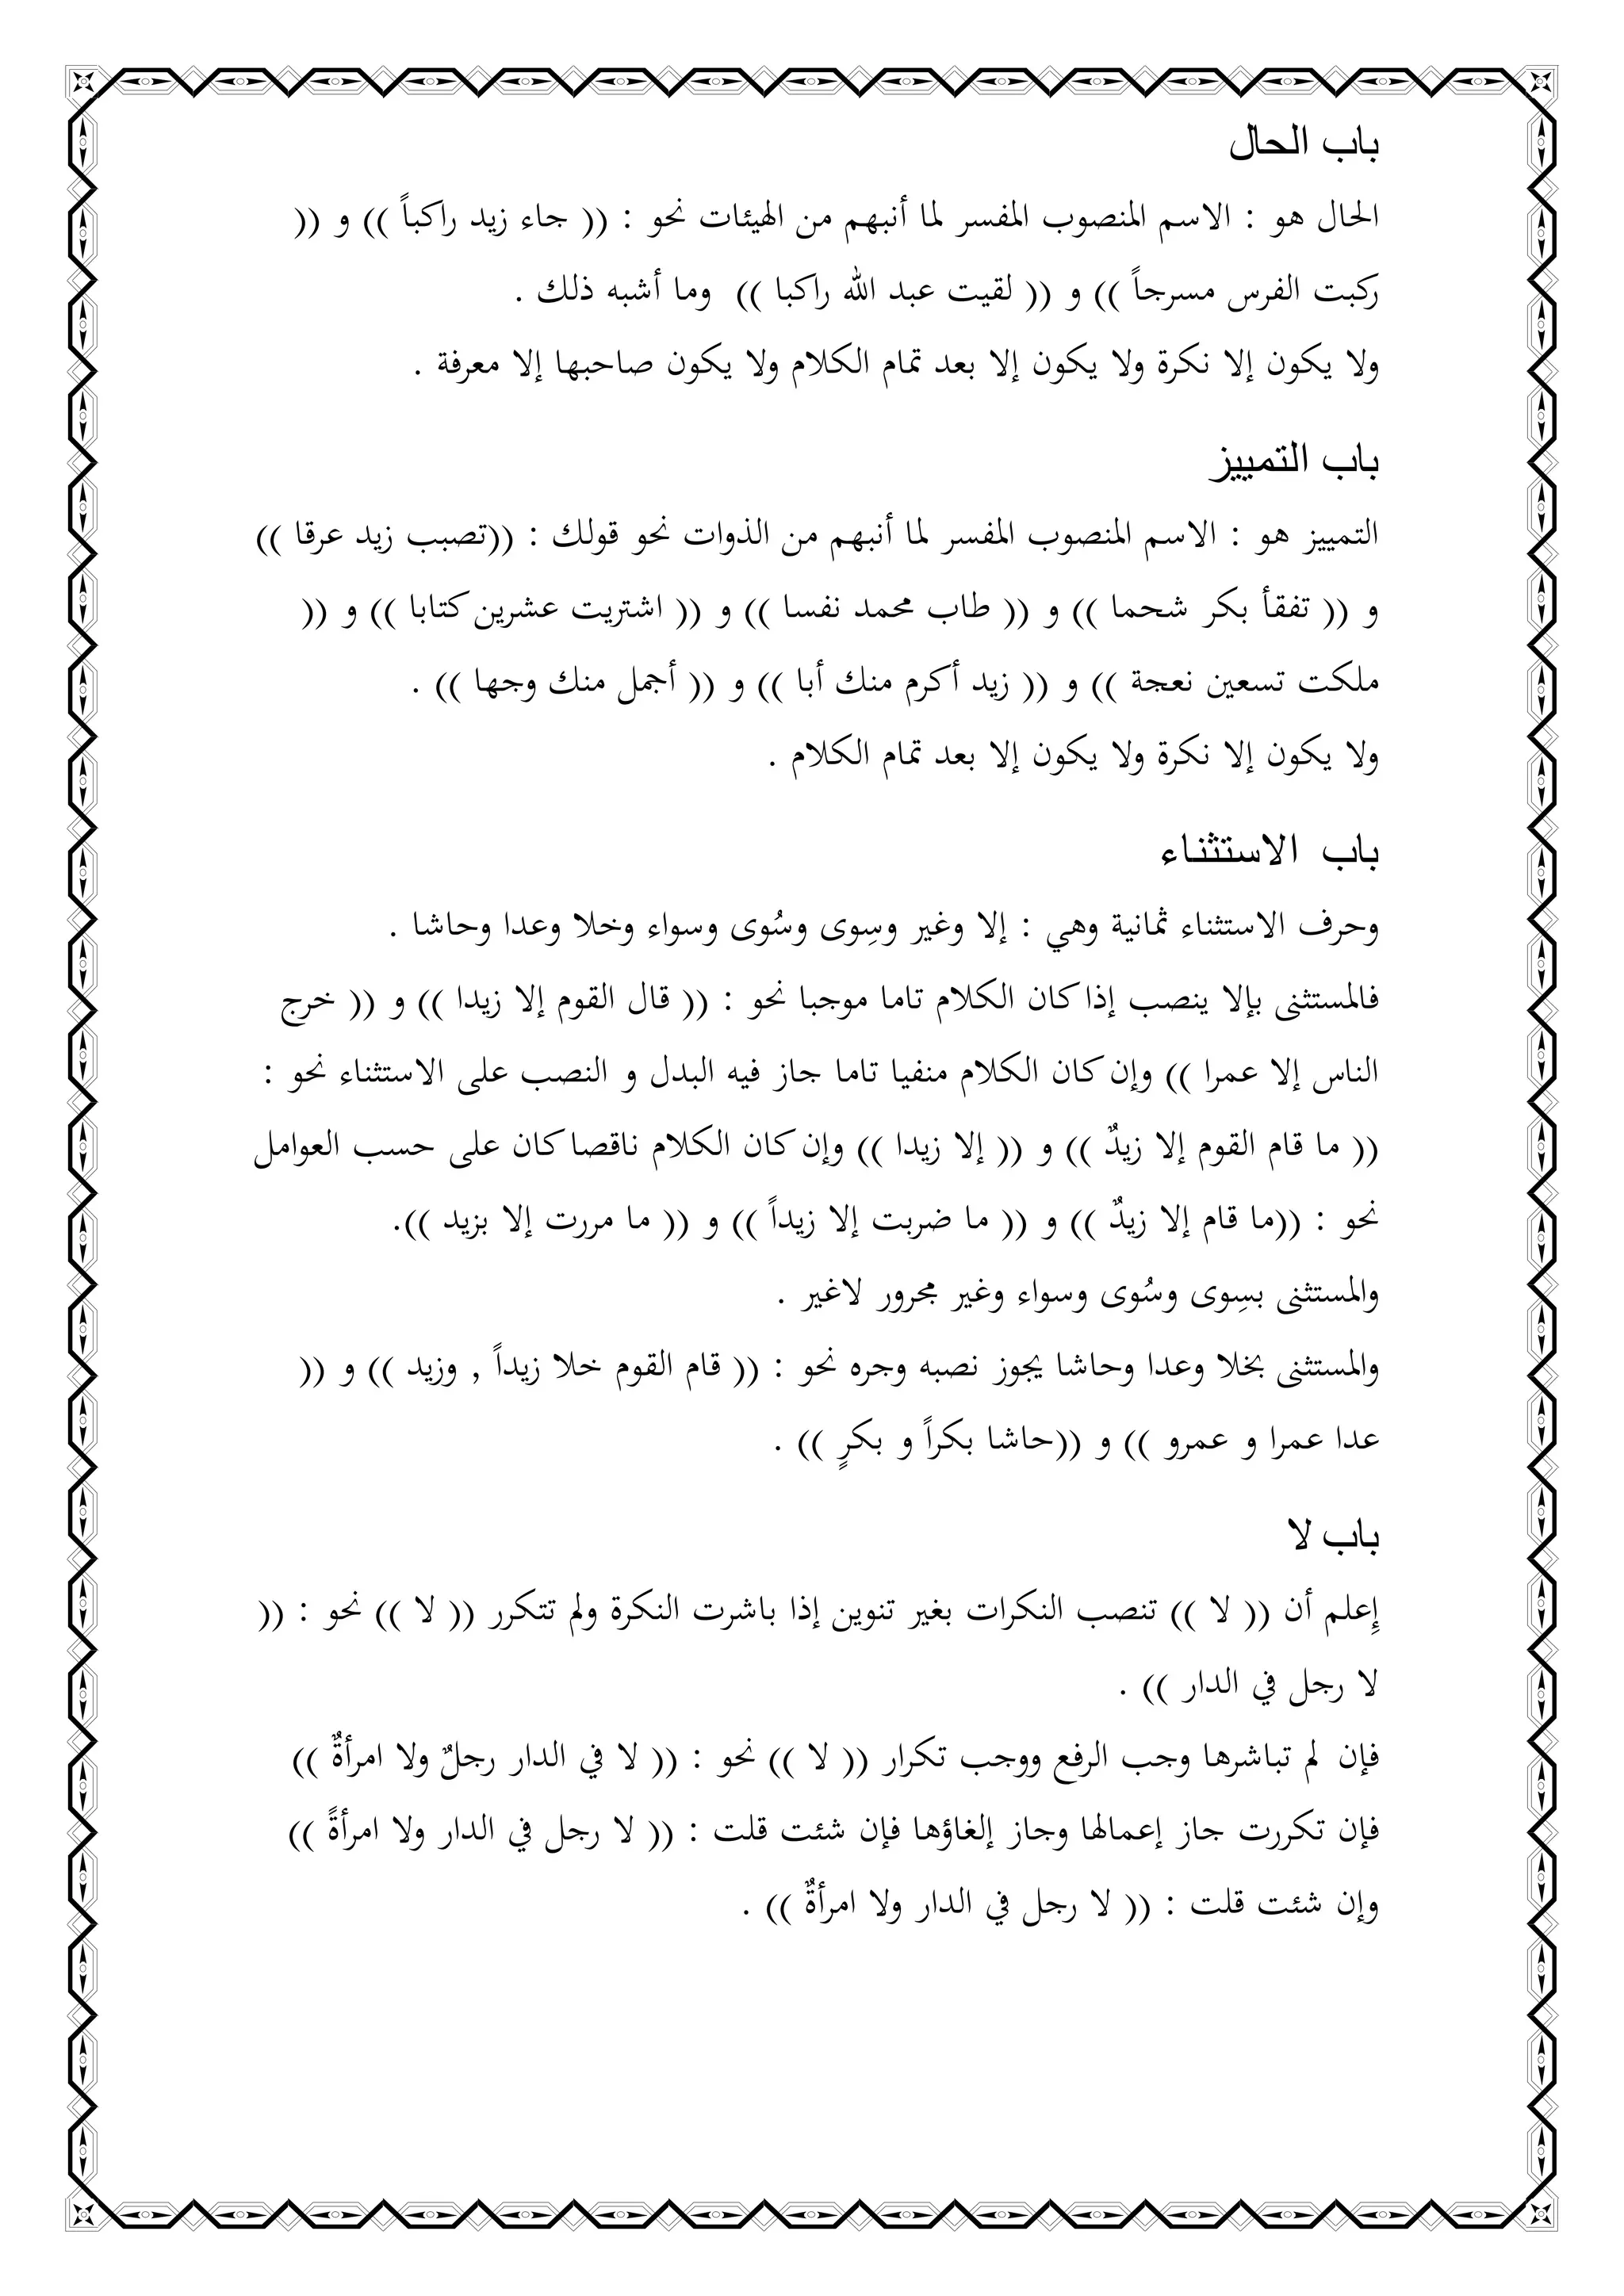 باب الحال
الحال هو : الاسم المنصوب المفسر لما أنبهم من الهيئات نحو : (( جاء زيد راكباً )) و ((
ركبت الفرس مسرجاً )) و (( لقيت عبد الله راكبا )) وما أشبه ذلك .
ولا يكون إلا نكرة ولا يكون إلا بعد تمام الكلام ولا يكون صاحبها إلا معرفة .
باب التمييز
التمييز هو : الاسم المنصوب المفسر لما أنبهم من الذوات نحو قولك : ((تصبب زيد عرقا ))
و (( تفقأ بكر شحما )) و (( طاب محمد نفسا )) و (( اشتريت عشرين كتابا )) و ((
ملكت تسعين نعجة )) و (( زيد أكرم منك أبا )) و (( أجمل منك وجها )) .
ولا يكون إلا نكرة ولا يكون إلا بعد تمام الكلام .
باب الاستثناء
وحرف الاستثناء ثمانية وهي : إلا وغير وسِوى وسُوى وسواء وخلا وعدا وحاشا .
فالمستثنى بإلا ينصب إذا كان الكلام تاما موجبا نحو : (( قال القوم إلا زيدا )) و (( خرج
الناس إلا عمرا )) وإن كان الكلام منفيا تاما جاز فيه البدل و النصب على الاستثناء نحو :
(( ما قام القوم إلا زيدٌ )) و (( إلا زيدا )) وإن كان الكلام ناقصا كان على حسب العوامل
نحو : ((ما قام إلا زيدٌ )) و (( ما ضربت إلا زيداً )) و (( ما مررت إلا بزيد )).
والمستثنى بسِوى وسُوى وسواء وغير مجرور لاغير .
والمستثنى بخلا وعدا وحاشا يجوز نصبه وجره نحو : (( قام القوم خلا زيداً , وزيد )) و ((
عدا عمرا و عمرو )) و ((حاشا بكراً و بكرٍ )) .
باب لا
إِعلم أن (( لا )) تنصب النكرات بغير تنوين إذا باشرت النكرة ولم تتكرر (( لا )) نحو : ((
لا رجل في الدار )) .
فإن لم تباشرها وجب الرفع ووجب تكرار (( لا )) نحو : (( لا في الدار رجلٌ ولا امرأةٌ ))
فإن تكررت جاز إعمالها وجاز إلغاؤها فإن شئت قلت : (( لا رجل في الدار ولا امرأةً ))
وإن شئت قلت : (( لا رجل في الدار ولا امرأةٌ )) .